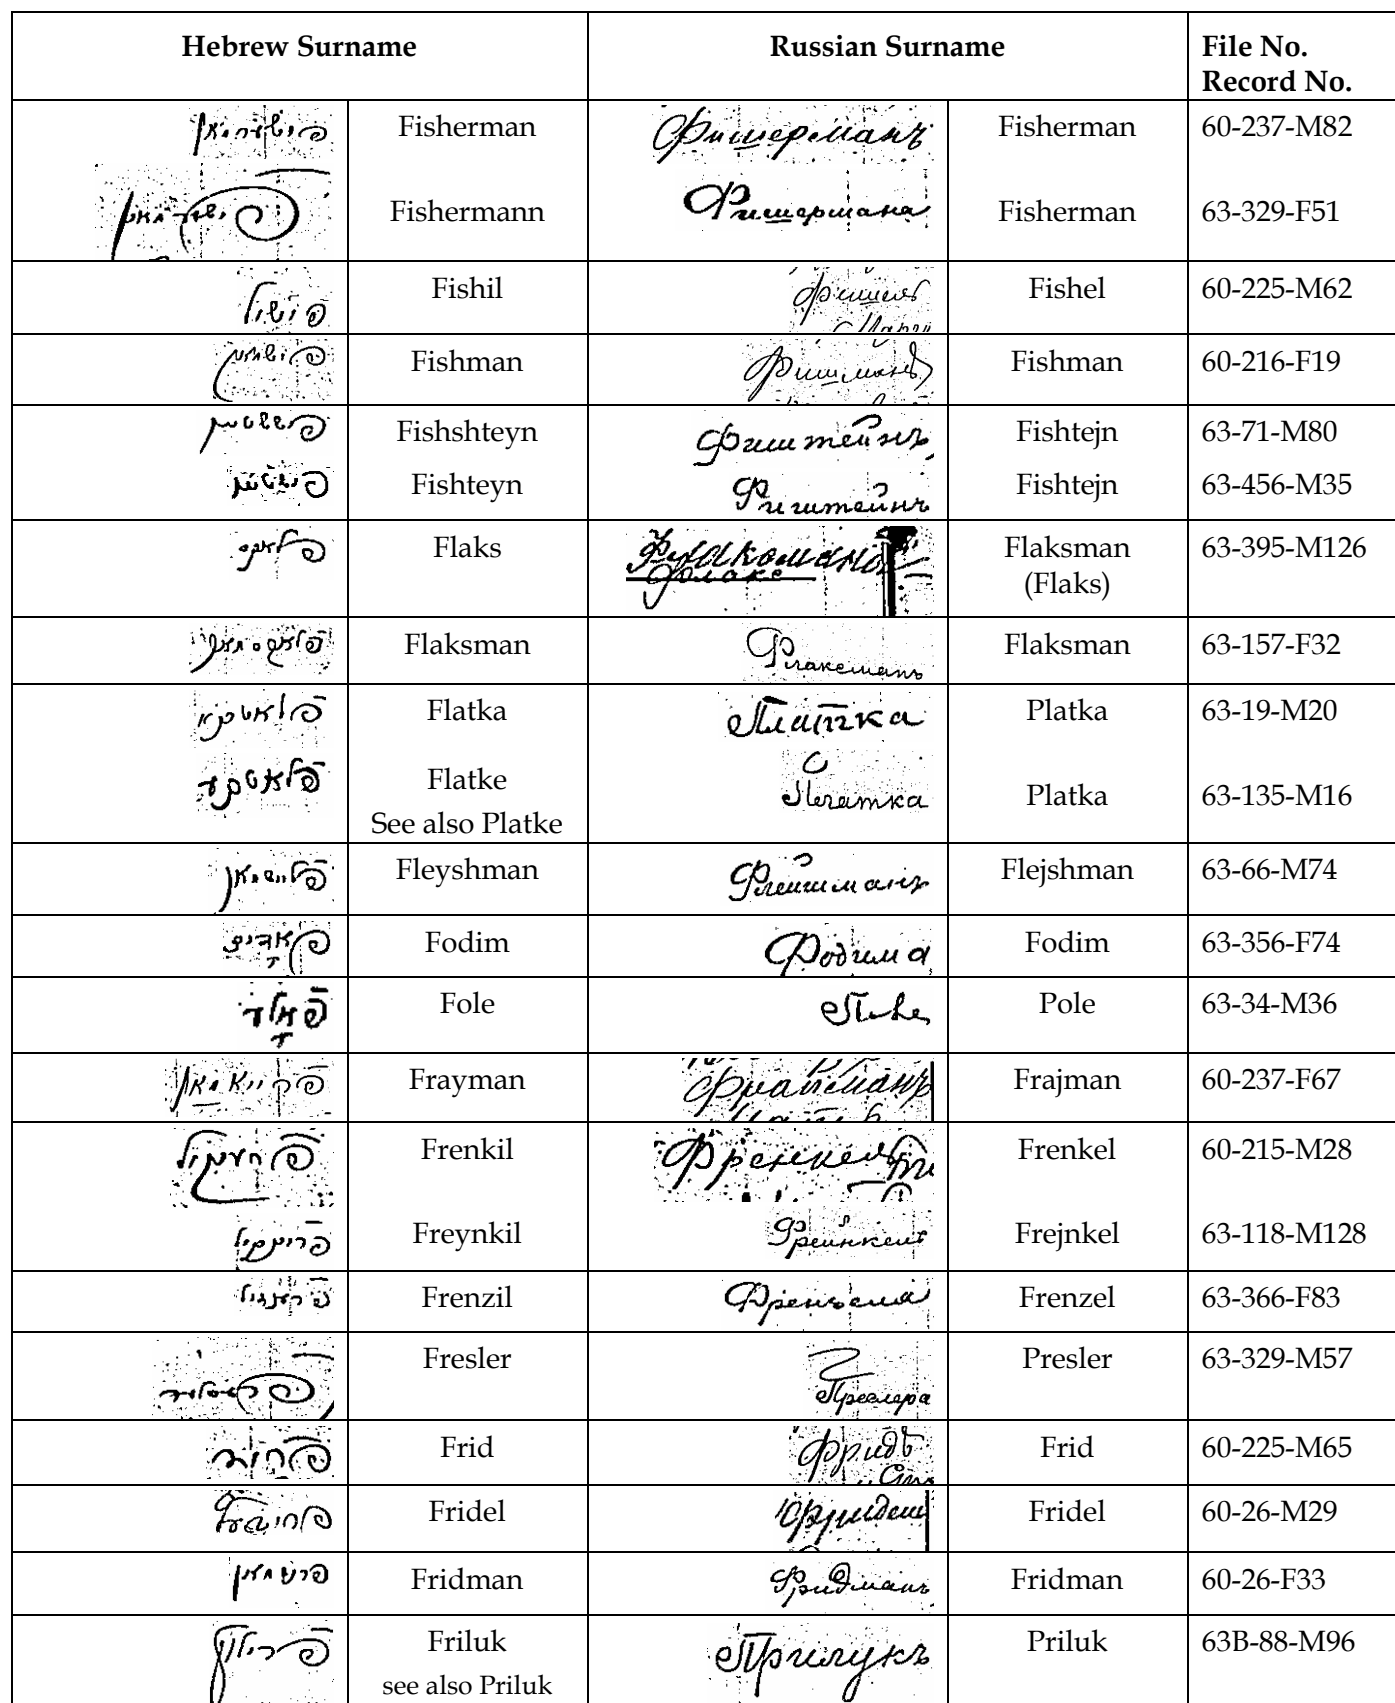 Hebrew Surname Russian Surname File No.
Record No.
Fisherman Фишерманъ Fisherman 60-237-M82
Fishermann Фишермана Fisherman 63-329-F51
Fishil Фишель Fishel 60-225-M62
Fishman Фишманъ Fishman 60-216-F19
Fishshteyn Фиштейнъ Fishtejn 63-71-M80
Fishteyn Фиштейнъ Fishtejn 63-456-M35
פלאקס Flaks Флаксмана Flaksman 63-395-M126
Флаксъ (Flaks)
פלאקסמאן Flaksman Флаксманъ Flaksman 63-157-F32
פלאטקא Flatka Платка Platka 63-19-M20
פלאטקע Flatke Платка Platka 63-135-M16
See also Platke
פליישמאן Fleyshman Флейшманъ Flejshman 63-66-M74
Fodim Фодима Fodim 63-356-F74
פאלע Fole Pole 63-34-M36
פרייאמאן Frayman Фрайманъ Frajman 60-237-F67
פרענקיל Frenkil Френкель Frenkel 60-215-M28
פריינקיל Freynkil Фрейнкель Frejnkel 63-118-M128
Frenzil Френзеля Frenzel 63-366-F83
Fresler Преслера Presler 63-329-M57
פריד Frid Фридъ Frid 60-225-M65
Fridel Фридель Fridel 60-26-M29
Fridman Фридманъ Fridman 60-26-F33
פרילוק Friluk Прилукъ Priluk 63B-88-M96
see also Priluk